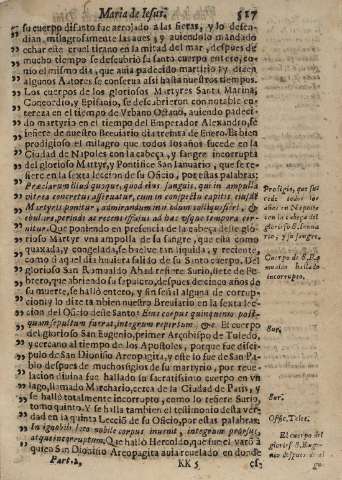 Maria de Iesus. 517
su cuerpo difunto fue arrojado a las fieras, y lo defen-
dian, milagrosamente las aues, y auiendolo mandado
echar este cruel tirano en la mitad del mar, despues de
mucho tiempo se descubrió su santo cuerpo entero, co-
mo el mismo dia, que auia padecido martirio, y dizen
algunos Autores se conserua assi hasta nuestros tiempos.
Los cuerpos de los gloriosos Martyres Santa Marina,
Concordio, y Epifanio, se descubrieron con notable en-
tereza en el tiempo de Vrbano Octauo, auiendo padeci-
do martyrio en el tiempo del Emperador Alexandro, se
refiere de nuestro Breuiario dia treinta de Enero. Es bien
prodigioso el milagro que todos los años sucede en la
Ciudad de Napoles con la cabeça, y sangre incorrupta
del glorioso Martyr, y Pontifice San Ianuario, que se re-
fiere en la sexta leccion de su Oficio, por estas palabras:
Præclarum illud quoque, quod eius sanguis, qui in ampulla
vitrea concretus asseruatur, cum in conspectu capitis eiusdē
Martyris ponitur, admirandum in modum colliquefieri, &
ebullire, perinde ac recens effusus ad hæc vsque tempora cer-
nitur. Que poniendo en presencia de la cabeça deste glo-
rioso Martyr vna ampolla de su sangre, que está como
quaxada, y congelada, se buelue tan liquida, y reciente,
como si aquel dia huuiera salido de su Santo cuerpo. Del
glorioso San Romualdo Abad refiere Surio, siete de Fe-
brero, que abriendo su sepulcro, despues de cinco años de
su muerte, se halló entero, y sin señal alguna de corrup-
cion; y lo dize tambien nuestro Breuiario en la sexta lec-
cion del Oficio deste Santo: Eius corpus quinquennio post-
quam sepultum fuerat, integrum repertum &c. El cuerpo
del glorioso San Eugenio, primer Arçobispo de Toledo,
y cercano al tiempo de los Apostoles, porque fue disci-
pulo de San Dionisio Areopagita, y este lo fue de San Pa-
blo despues de muchos siglos de su martyrio, por reue-
lacion diuina fue hallado su sacratissimo cuerpo en vn
lago, llamado Marchario, cerca de la Ciudad de Paris, y
se halló totalmente incorrupto, como lo refiere Surio,
tomo quinto. Y se halla tambien el testimonio desta ver-
dad en la quinta Lecció de su Oficio, por estas palabras:
In ignobili loto nobile corpus inuenit, integrum prorsus,
atque incorruptum. Que halló Hercoldo, que fue el varó a
quien San Dionisio Areopagita auia reuelado en donde
Part. 2, KK 5 es-
Prodigio, que su-
cede todos los
años en Napoles
con la cabeça del
glorioso S. Ianua-
rio, y su sangre.
Cuerpo de S. Ro-
mualdo hallado
incorrupto.
Sur.
Sur.
Offic. Tolet.
El cuerpo del
glorioso S. Euge-
nio despues de al
gu-